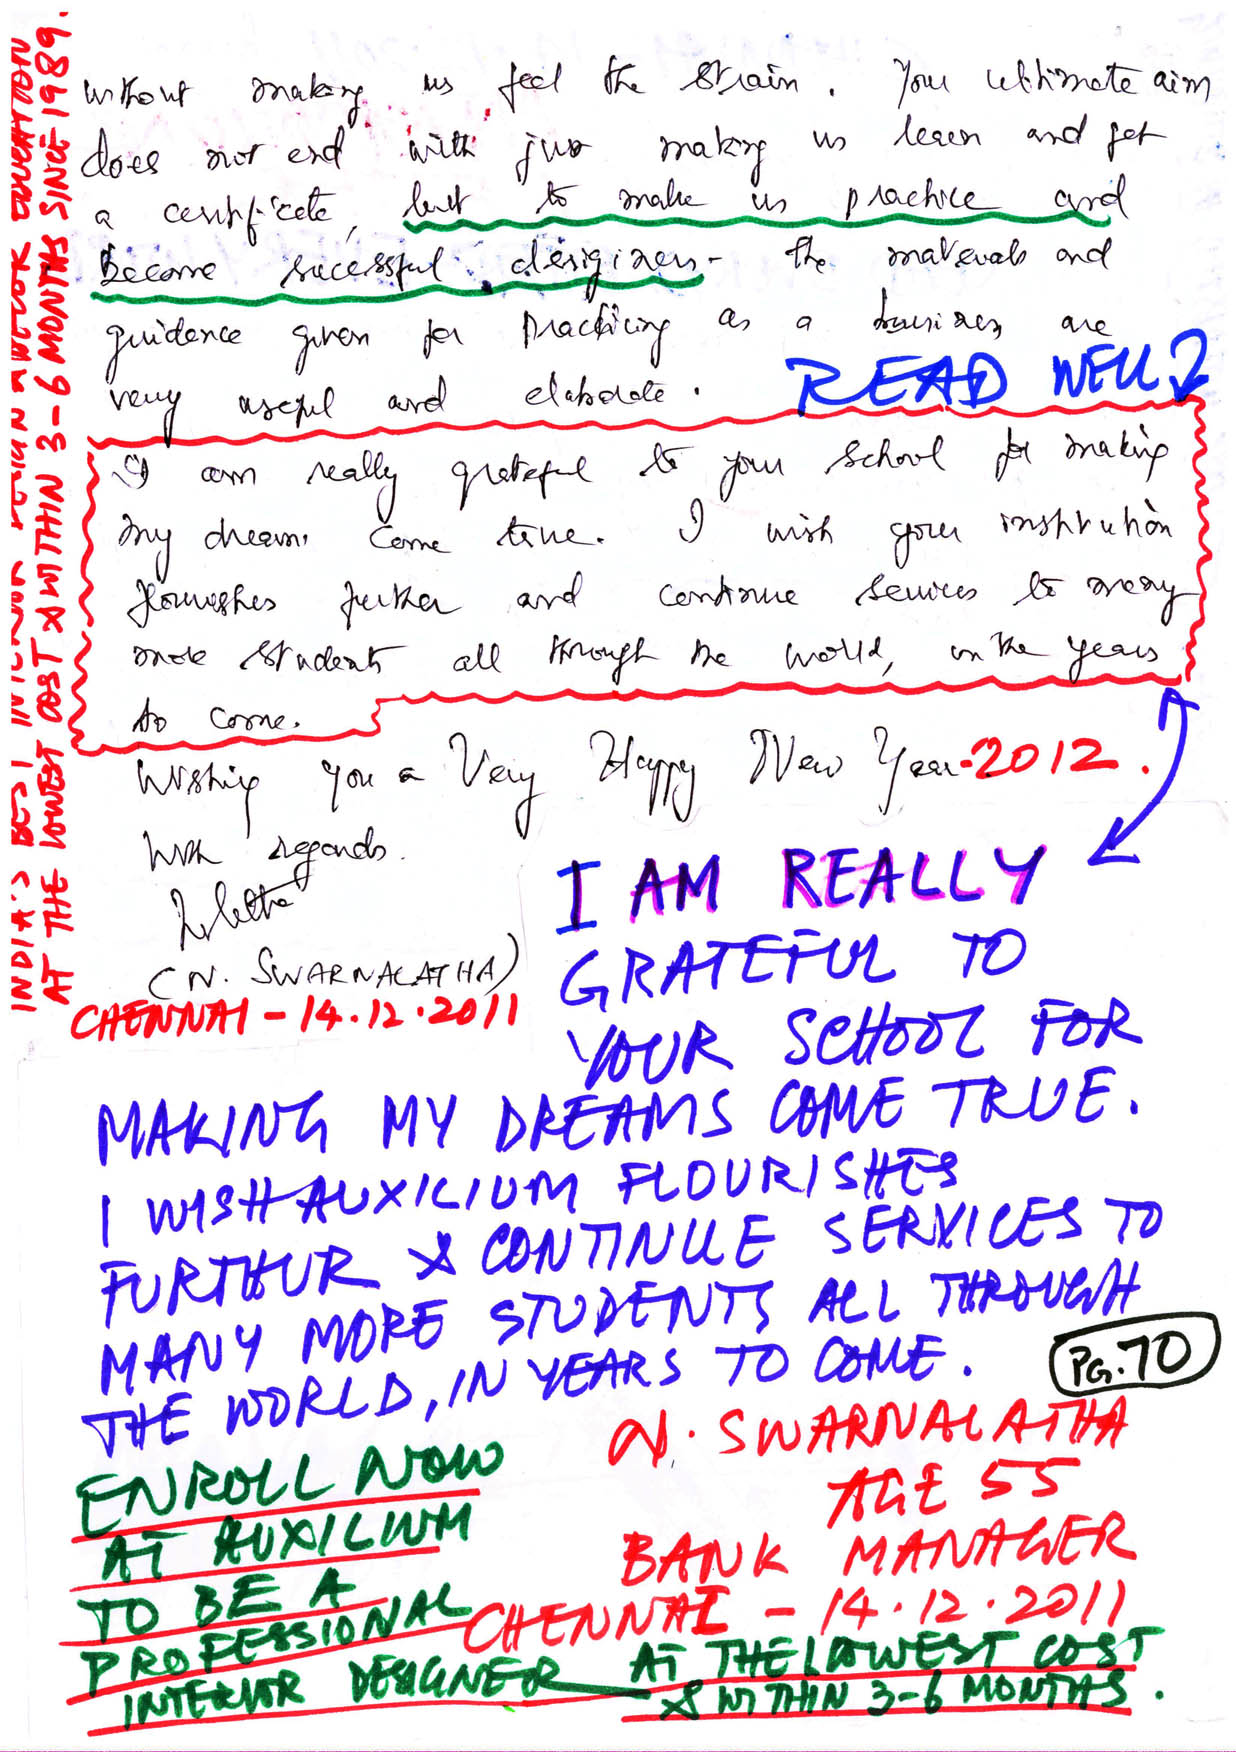 without making us feel the strain. Your ultimate aim
does not end with just making us learn and get
a certificate, but to make us practice and
become sucessful designers- the materials and
guidence given for practicing as a business are
very useful and elaborate.
READ WELL
I am really grateful to your school for making
my dreams come true. I wish your institution
flourishes further and continue services to many
more students all through the world, in the years
to come.
Wishing you a Very Happy New Year-2012.
With regards.
(N. SWARNALATHA)
CHENNAI - 14.12.2011
I AM REALLY
GRATEFUL TO
YOUR SCHOOL FOR
MAKING MY DREAMS COME TRUE.
I WISH AUXILIUM FLOURISHES
FURTHUR & CONTINUE SERVICES TO
MANY MORE STUDENTS ALL THROUGH
THE WORLD, IN YEARS TO COME.
PG.70
N. SWARNALATHA
AGE 55
BANK MANAGER
CHENNAI - 14.12.2011
ENROLL NOW
AT AUXILIUM
TO BE A
PROFESSIONAL
INTERIOR DESIGNER AT THE LOWEST COST
& WITHIN 3-6 MONTHS.
INDIA'S BEST INTERIOR DESIGN & DECOR EDUCATION
AT THE LOWEST COST & WITHIN 3-6 MONTHS SINCE 1989.